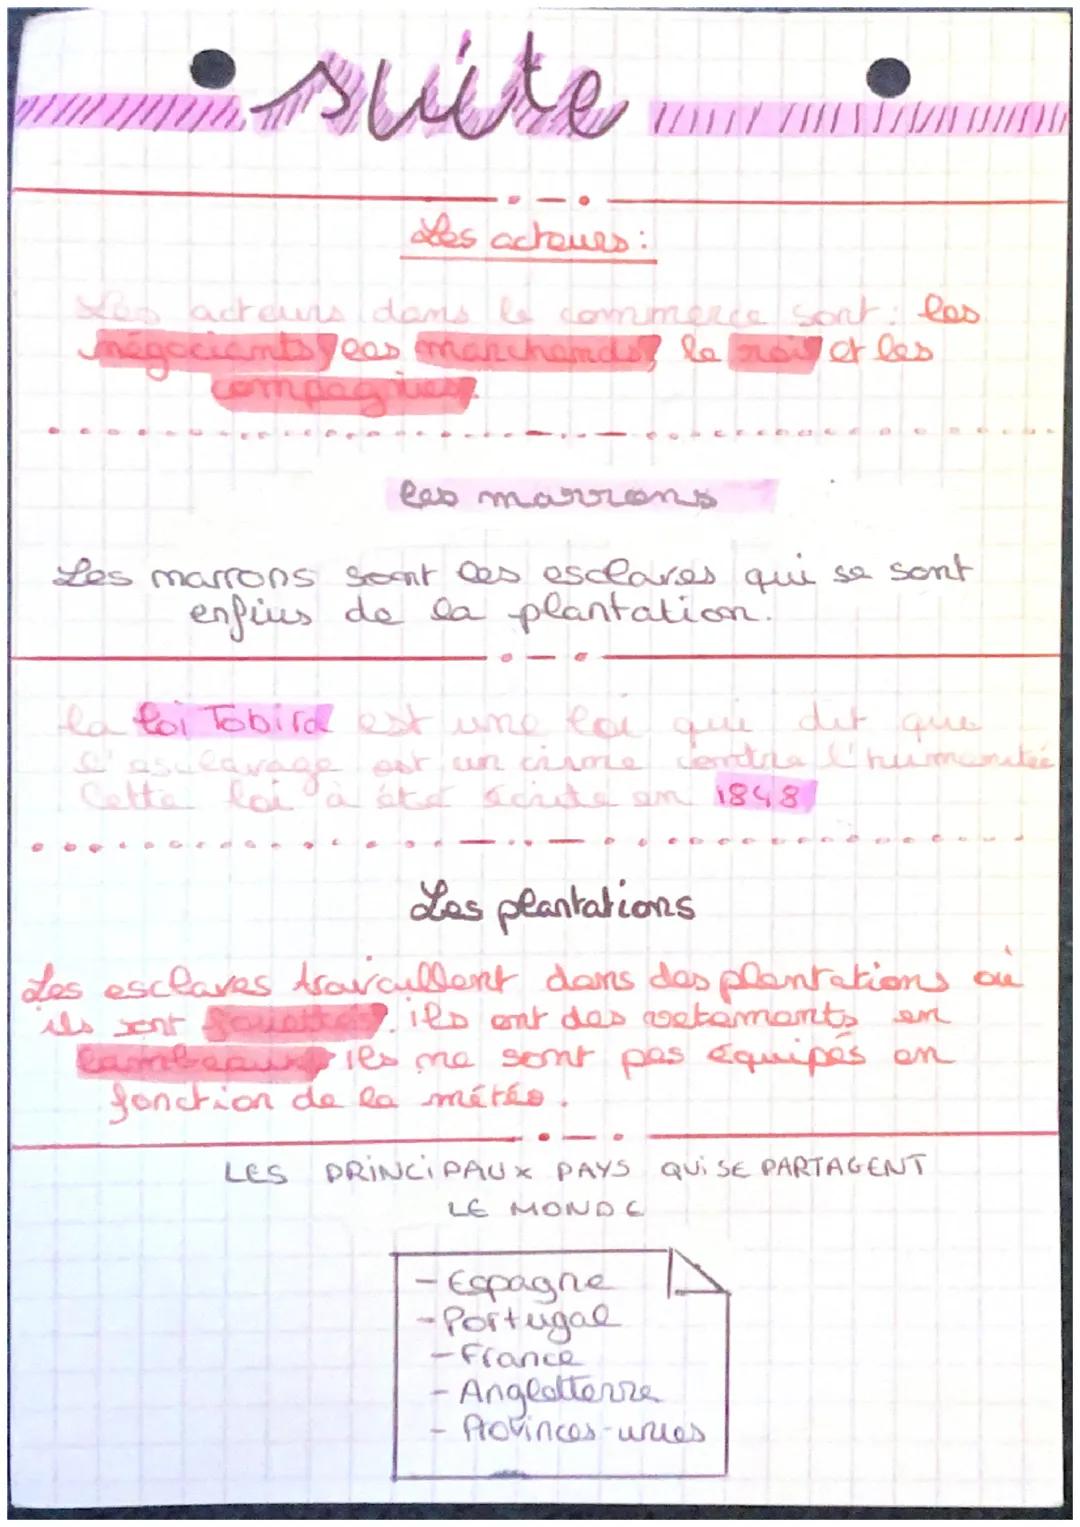 suite
Les acteurs :
Les acteurs dans le commerce sont : les
négociants, les marchands, le roi et les
compagnies.
les marrons
Les marrons sont les esclaves qui se sont
enfius de la plantation.
la loi Tobira est une loi qui dit que
l'esclavage est un crime contre l'humanitée
Cette loi à été écrite en 1848
Les plantations
Les esclaves travaillent dans des plantations où
ils sont fouettés. ils ont des vetements en
lambeaux ils ne sont pas équipés en
fonction de la météo.
LES PRINCIPAUX PAYS QUI SE PARTAGENT
LE MONDE
- Espagne
- Portugal
- France
- Angletterre
- Provinces-unies